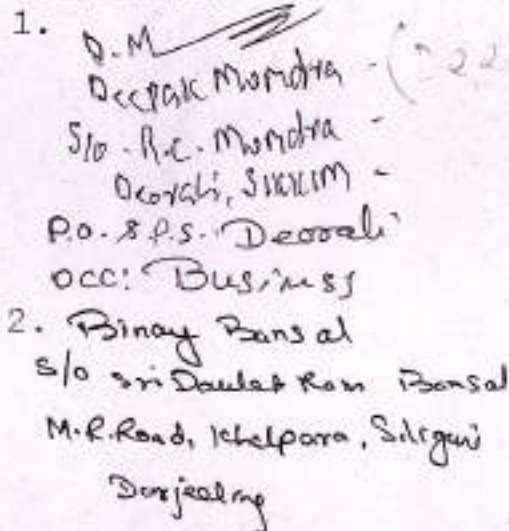 1.
D.M
Deepak Mundra -
S/o - R.C. Mundra -
Deorali, SIKKIM -
P.O. & P.S. Deorali
OCC: Business
2. Binay Bansal
S/o Sri Daulat Ram Bansal
M.R. Road, Khalpara, Siliguri
Darjeeling